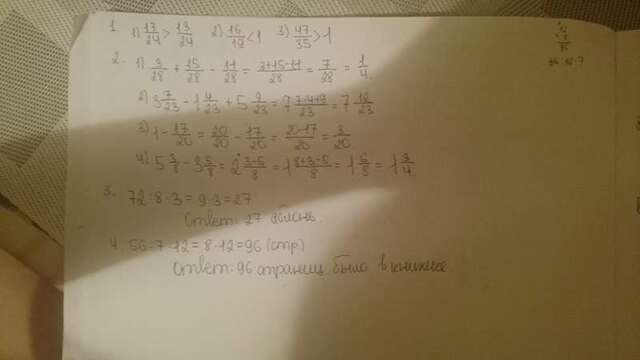 1. 1) 17/24 > 13/24 2) 16/19 < 1 3) 47/35 > 1
2. 1) 3/28 + 15/28 - 11/28 = 3+15-11/28 = 7/28 = 1/4
2) 3 7/23 - 1 4/23 + 5 9/23 = 7 7-4+9/23 = 7 12/23
3) 1 - 17/20 = 20/20 - 17/20 = 20-17/20 = 3/20
4) 5 3/8 - 3 5/8 = 2 3-5/8 = 1 8+3-5/8 = 1 6/8 = 1 3/4
3. 72:8·3=9·3=27
Ответ 27
4. 56:7·12=8·12=96 (стр)
Ответ: 96 страниц было в книжке